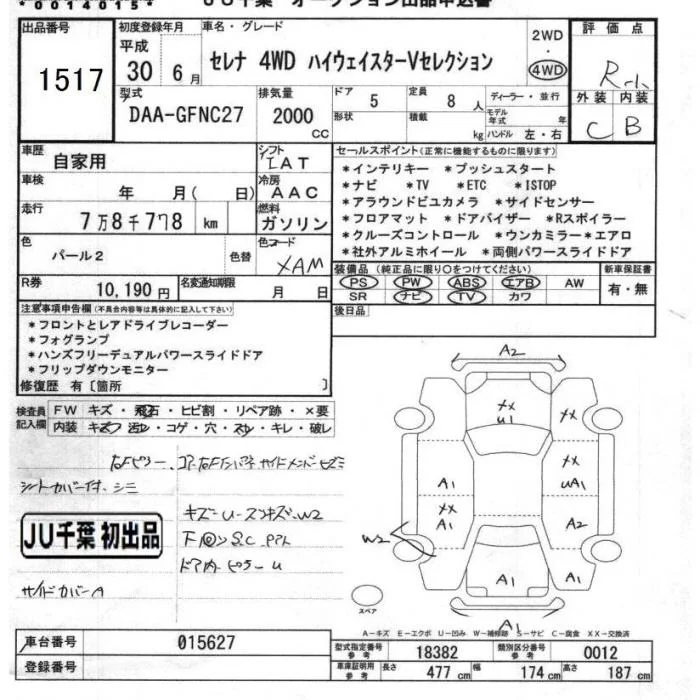 *0014015*  JU千葉 オークション出品申込書
出品番号 1517
初度登録年月 平成 30 6 月
車名・グレード セレナ 4WD ハイウェイスターVセレクション
2WD・4WD
評価点 R
外装 内装
C B
型式 DAA-GFNC27
排気量 2000 CC
ドア 5 定員 8 人 ディーラー・並行
形状 積載 kg モデル年式 年
ハンドル 左・右
車歴 自家用
シフト IAT
車検 年 月( 日)
冷房 AAC
走行 7万8千778 km
燃料 ガソリン
色 パール2 色替
色コード XAM
R券 10,190 円
名変通知期限 月 日
セールスポイント(正常に機能するものに限ります)
*インテリキー *プッシュスタート
*ナビ *TV *ETC *ISTOP
*アラウンドビュカメラ *サイドセンサー
*フロアマット *ドアバイザー *Rスポイラー
*クルーズコントロール *ウンカミラー*エアロ
*社外アルミホイール *両側パワースライドドア
装備品(純正品に限り○をつけてください) 新車保証書
PS PW ABS エアB AW 有・無
SR ナビ TV カワ
後日品
注意事項申告欄(不具合内容等は具体的に記入して下さい)
*フロントとレアドライブレコーダー
*フォグランプ
*ハンズフリーデュアルパワースライドドア
*フリップダウンモニター
修復歴 有〔箇所 〕
検査員記入欄
FW キズ・飛石・ヒビ割・リペア跡・×要
内装 キズ 汚レ・コゲ・穴・スレ・キレ・破レ
シートカバー付
キズ U W2
ドア内ピラー U
サイドカバーA
JU千葉 初出品
A2
XX
U1
XX
A1
XX
UA1
XX
A1
A2
W2
A1
A1
A1
スペア
A−キズ E−エクボ U−凹み W−補修跡 S−サビ C−腐食 XX−交換済
車台番号 015627
登録番号
型式指定番号 参考 18382 類別区分番号 参考 0012
車庫証明用 参考 長さ 477 cm 幅 174 cm 高さ 187 cm